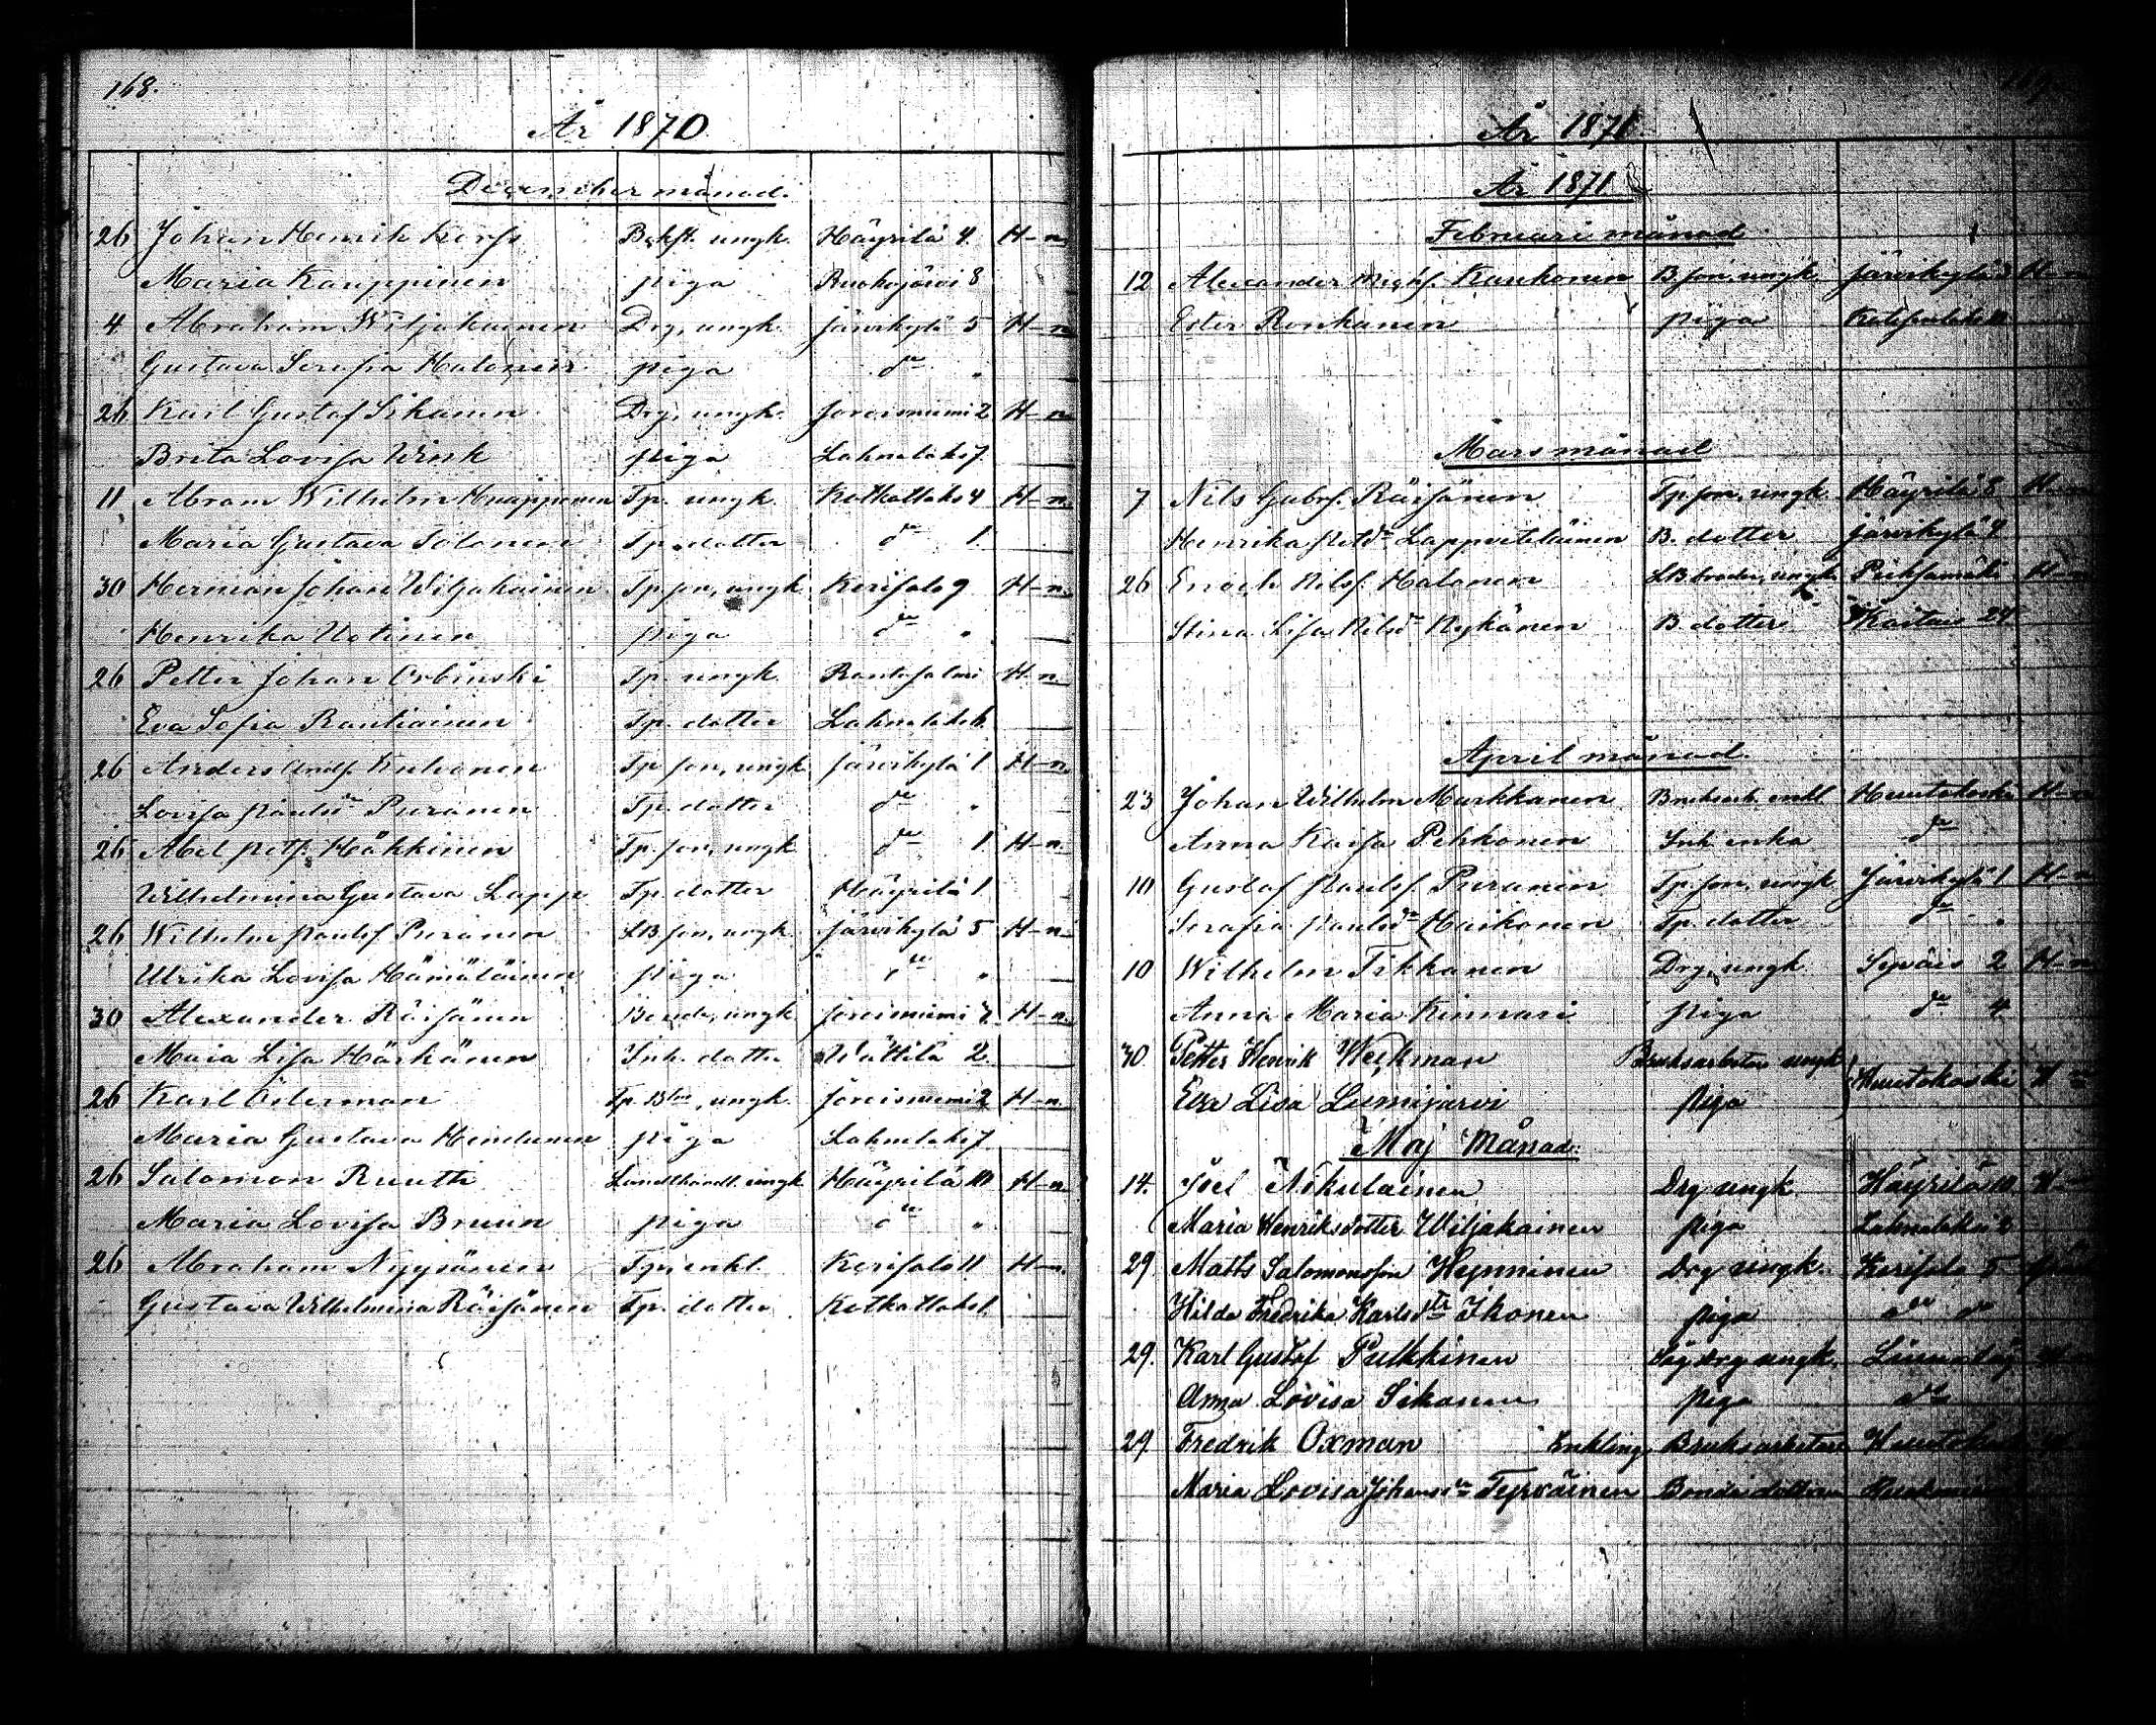 168.
År 1870
December månad.
26 Johan Henrik Korfs B.kst. ungk. Häyrilä 4. H-n
Maria Kauppinen piga Ruokojärvi 8
4 Abraham Wiljakainen Drg, ungk. Järvikylä 5 H-n
Gustava Serafia Halonen piga do "
26 Karl Gustaf Sikanen Drg, ungk. Joroisniemi 2 H-n
Brita Lovisa Wink piga Lahnalaks 7
11 Abram Wilhelm Knuppinen Tp. ungk. Kotkatlaks 4 H-n
Maria Gustava Tolonen Tp. dotter do 1
30 Herman Johan Wiljakainen Tp son, ungk. Kerisalo 9 H-n
Henrika Uotinen piga do "
26 Petter Johan Orbinski Tp. ungk. Rantasalmi H-n
Eva Sofia Rautiainen Tp. dotter Lahnalaks
26 Anders Andf. Kuivonen Tp son, ungk Järvikylä 1 H-n
Lovisa Paulsdr Puranen Tp. dotter do "
26 Abel Petf. Häkkinen Tp. son, ungk do 1 H-n
Wilhelmina Gustava Lapp Tp. dotter Häyrilä 1
26 Wilhelm Paulsf Puranen LB son, ungk. Järvikylä 5 H-n
Ulrika Lovisa Hämäläinen piga do "
30 Alexander Räisänen Bonde, ungk. Joroisniemi 7 H-n
Maria Lisa Härkänen Inh. dotter Wättilä 2
26 Karl Österman Tp. Bror, ungk. Joroisniemi 2 H-n
Maria Gustava Heinänen piga Lahnalaks 7
26 Salomon Ruuth Landthandl. ungk Häyrilä 10 H-n
Maria Lovisa Bruun piga do "
26 Abraham Nyyssönen Tp. enkl. Kerisalo 11 H-n
Gustava Wilhelmina Räisänen Tp. dotter Kotkatlaks 1
År 1871.
År 1871
Februari månad
12 Alexander Kaukonen B. son, ungk. Järvikylä 3 H-n
Ester Ronkanen piga
Mars månad
7 Nils Gabrf. Räisänen Tp. son, ungk. Häyrilä 8 H-n
Henrika Petdr Lappveteläinen B. dotter Järvikylä 4
26 Enoch Nilsf. Halonen LB broder, ungk Pieksämäki H-n
Stina Lisa Nilsdr Nykänen B. dotter Kaitais 24
April månad.
23 Johan Wilhelm Murkkanen Bruksarb. enkl. Huutokoski H-n
Anna Kaisa Pekkonen Inh. enka do
10 Gustaf Paulsf. Puranen Tp. son, ungk Järvikylä 1 H-n
Serafia Paulsdr Haikonen Tp. dotter do "
10 Wilhelm Tikkanen Drg, ungk. Sysväis 2 H-n
Anna Maria Kinnari piga do 4
30. Petter Henrik Weckman Bruksarbetare ungk Huutokoski H-n
Eva Lisa Lumijärvi piga
Maj Månad:
14. Joel Nikulainen Drg ungk. Häyrilä 10 H-n
Maria Henriksdotter Wiljakainen piga Lahnalaks 2
29 Matts Salomonsson Heynninen Drg ungk. Kerisalo 5
Hilda Fredrika Karlsdtr Ikonen piga do do
29. Karl Gustaf Pulkkinen Drg ungk.
Anna Lovisa Sikanen piga do
29 Fredrik Oxman Enkling Bruksarbetare
Maria Lovisa Johansdr Tyrväinen Bondedotter